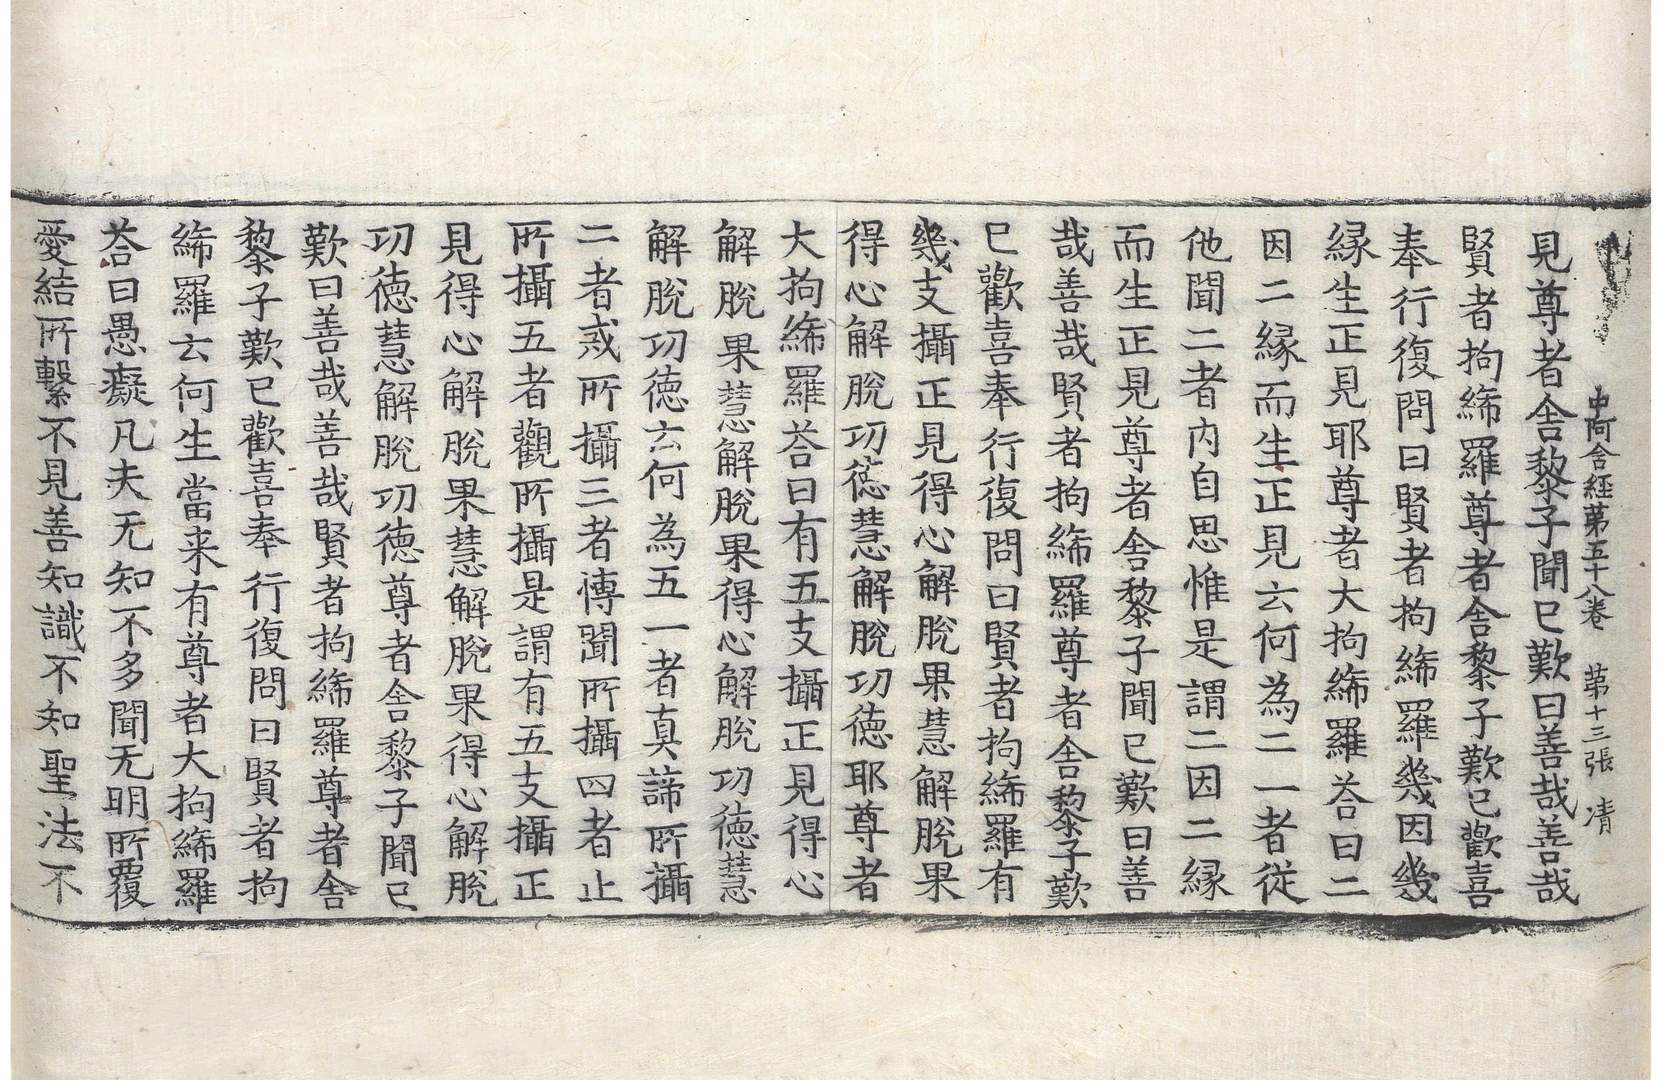 中阿含經第五十八卷 第十三張 清
見尊者舍黎子聞已歎曰善哉善哉
賢者拘絺羅尊者舍黎子歎已歡喜
奉行復問曰賢者拘絺羅幾因幾
緣生正見耶尊者大拘絺羅荅曰二
因二緣而生正見云何為二一者從
他聞二者內自思惟是謂二因二緣
而生正見尊者舍黎子聞已歎曰善
哉善哉賢者拘絺羅尊者舍黎子歎
已歡喜奉行復問曰賢者拘絺羅有
幾支攝正見得心解脫果慧解脫果
得心解脫功德慧解脫功德耶尊者
大拘絺羅荅曰有五支攝正見得心
解脫果慧解脫果得心解脫功德慧
解脫功德云何為五一者真諦所攝
二者戒所攝三者博聞所攝四者止
所攝五者觀所攝是謂有五支攝正
見得心解脫果慧解脫果得心解脫
功德慧解脫功德尊者舍黎子聞已
歎曰善哉善哉賢者拘絺羅尊者舍
黎子歎已歡喜奉行復問曰賢者拘
絺羅云何生當来有尊者大拘絺羅
荅曰愚癡凡夫无知不多聞无明所覆
愛結所繫不見善知識不知聖法不